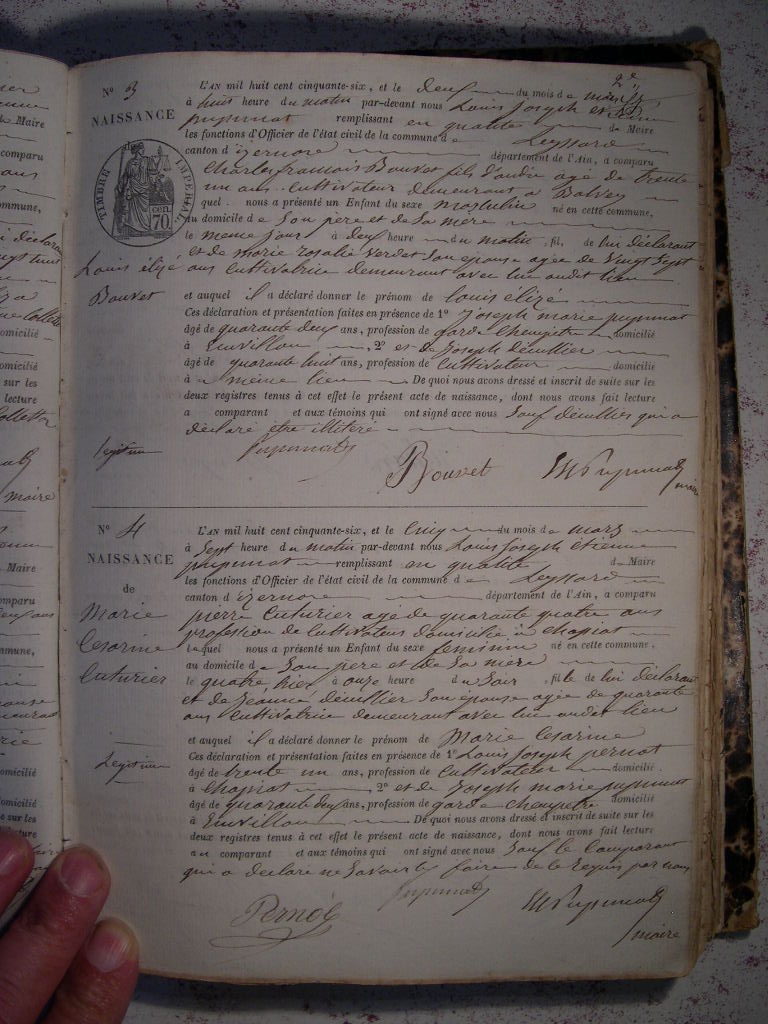 2e
No 3
NAISSANCE
TIMBRE IMPERIAL
cen. 70
Louis élizé
Bouvet
legitime
L'AN mil huit cent cinquante-six, et le deux du mois de mars
à huit heure du matin par-devant nous Louis Joseph
pupunat remplissant en qualité de Maire
les fonctions d'Officier de l'état civil de la commune de Leyssard
canton d'izernore département de l'Ain, a comparu
Charles françois Bouvet fils d'andré agé de trente
un ans Cultivateur demeurant a Balvay
quel nous a présenté un Enfant du sexe masculin né en cette commune,
au domicile de Son pere et de Sa mère
le meme jour à deux heure du matin, fil, de lui déclarant
et de marie rosalie verdet Son épouse agée de vingt Sept
ans Cultivatrice demeurant avec lui audit lieu
et auquel il a déclaré donner le prénom de louis elizé
Ces déclaration et présentation faites en présence de 1o Joseph marie pupunat
âgé de quarante deux ans, profession de garde champetre domicilié
à Enuvillon, 2o et de Joseph décullier
âgé de quarante huit ans, profession de Cultivateur domicilié
à meme lieu De quoi nous avons dressé et inscrit de suite sur les
deux registres tenus à cet effet le présent acte de naissance, dont nous avons fait lecture
a comparant et aux témoins qui ont signé avec nous Sauf décullier qui a
déclaré etre illitéré
pupunat Bouvet pupunat
maire
No 4
NAISSANCE
de
Marie
Cesarine
Cuturier
Legitime
L'AN mil huit cent cinquante-six, et le Cinq du mois de mars
à Sept heure du matin par-devant nous Louis Joseph étienne
pupunat remplissant en qualité de Maire
les fonctions d'Officier de l'état civil de la commune de Leyssard
canton d'izernore département de l'Ain, a comparu
pierre Cuturier agé de quarante quatre ans
profession de Cultivateur domicilié à Chapiat
lequel nous a présenté un Enfant du sexe feminin né en cette commune,
au domicile de Son pere et de Sa mère
le quatre hier à onze heure du Soir, fille de lui déclarant
et de Jeanne décullier Son épouse agée de quarante
ans Cultivatrice demeurant avec lui audit lieu
et auquel il a déclaré donner le prénom de Marie Cesarine
Ces déclaration et présentation faites en présence de 1o Louis Joseph pernot
âgé de trente un ans, profession de Cultivateur domicilié
à Chapiat 2o et de Joseph marie pupunat
âgé de quarante deux ans, profession de garde champetre domicilié
à Enuvillon De quoi nous avons dressé et inscrit de suite sur les
deux registres tenus à cet effet le présent acte de naissance, dont nous avons fait lecture
au comparant et aux témoins qui ont signé avec nous Sauf le Comparant
qui a declaré ne Savoir le faire de ce requis par nous
Pernot pupunat pupunat
maire